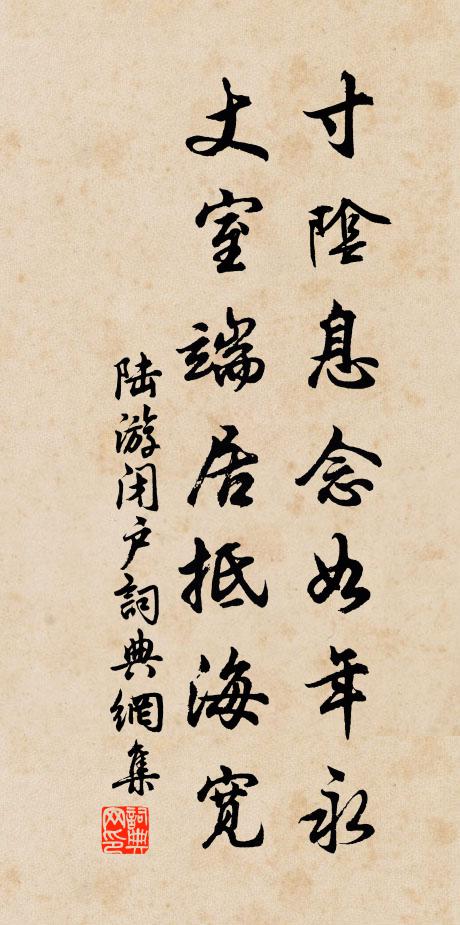 寸陰息念如年永
丈室端居抵海寬
陆游闭户詞典網集
詞典網印